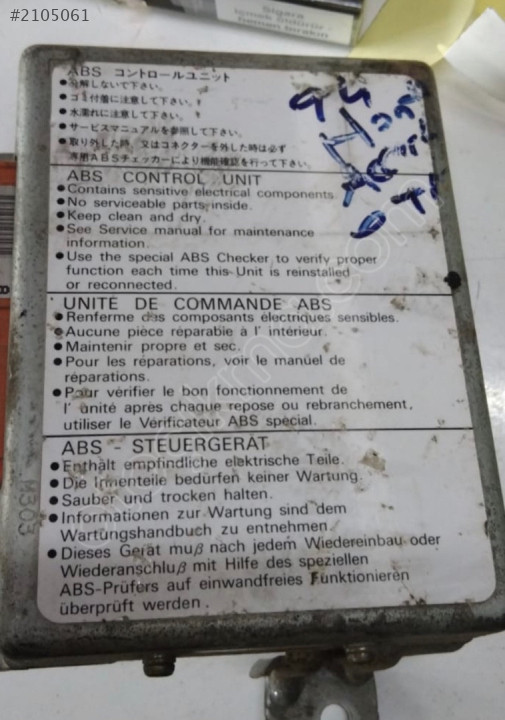 #2105061
Sigara
ABS コントロールユニット
●分解しないで下さい。
●ゴミ付着に注意して下さい。
●水濡れに注意して下さい。
●サービスマニュアルを参照して下さい。
●取り外した時、又はコネクターを外した時は必ず
専用ABSチェッカーにより機能確認を行って下さい。
ABS CONTROL UNIT
●Contains sensitive electrical components.
●No serviceable parts inside.
●Keep clean and dry.
●See Service manual for maintenance
information.
●Use the special ABS Checker to verify proper
function each time this Unit is reinstalled
or reconnected.
UNITÉ DE COMMANDE ABS
●Renferme des composants électriques sensibles.
●Aucune pièce réparable à l' intérieur.
●Maintenir propre et sec.
●Pour les réparations, voir le manuel de
réparations.
●Pour vérifier le bon fonctionnement de
l' unité après chaque repose ou rebranchement,
utiliser le Vérificateur ABS spécial.
ABS - STEUERGERÄT
●Enthält empfindliche elektrische Teile.
●Die Innenteile bedürfen keiner Wartung.
●Sauber und trocken halten.
●Informationen zur Wartung sind dem
Wartungshandbuch zu entnehmen.
●Dieses Gerät muß nach jedem Wiedereinbau oder
Wiederanschluß mit Hilfe des speziellen
ABS-Prüfers auf einwandfreies Funktionieren
überprüft werden.
M303